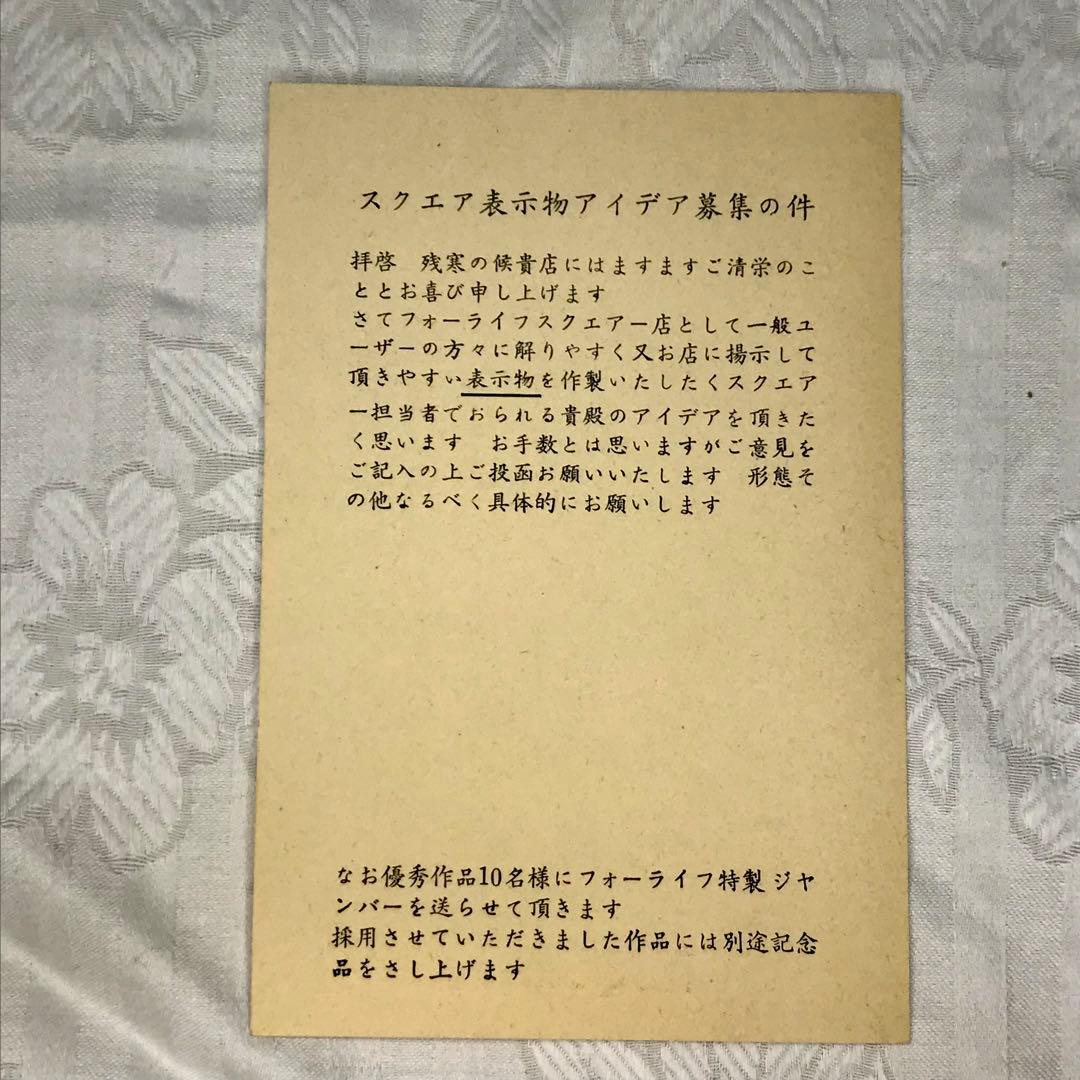 スクエア表示物アイデア募集の件
拝啓　残寒の候貴店にはますますご清栄のこ
ととお喜び申し上げます
さてフォーライフスクエアー店として一般ユ
ーザーの方々に解りやすく又お店に揚示して
頂きやすい表示物を作製いたしたくスクエア
ー担当者でおられる貴殿のアイデアを頂きた
く思います　お手数とは思いますがご意見を
ご記入の上ご投函お願いいたします　形態そ
の他なるべく具体的にお願いします
なお優秀作品10名様にフォーライフ特製ジャ
ンバーを送らせて頂きます
採用させていただきました作品には別途記念
品をさし上げます